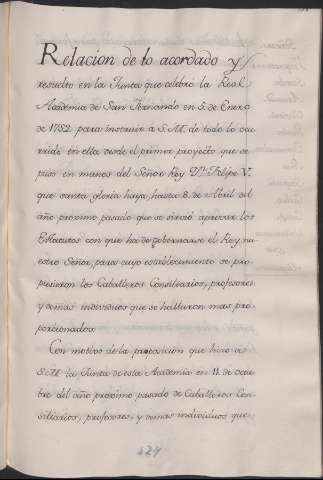 Relacion de lo acordado y
resuelto en la Junta que celebró la Real
Academia de San Fernando en 5 de Enero
de 1752 para instruir a S.M. de todo lo ocu
rrido en ella desde el primer proyecto que se
puso en manos del Señor Rey Dn. Felipe V.
que santa gloria haya, hasta 8 de Abril del
año proximo pasado que se sirvió aprovar los
Estatutos con que ha de gobernarse el Rey nu
estro Señor, para cuyo establecimiento se pro-
pusieron los Caballeros Consiliarios, profesores
y demas individuos que se hallaron mas pro
porcionados
Con motivo de la proposicion que hizo a
S.M. la Junta de esta Academia en 11 de octu
bre del año proximo pasado de Caballeros Con-
siliarios, profesores, y demas individuos que
324